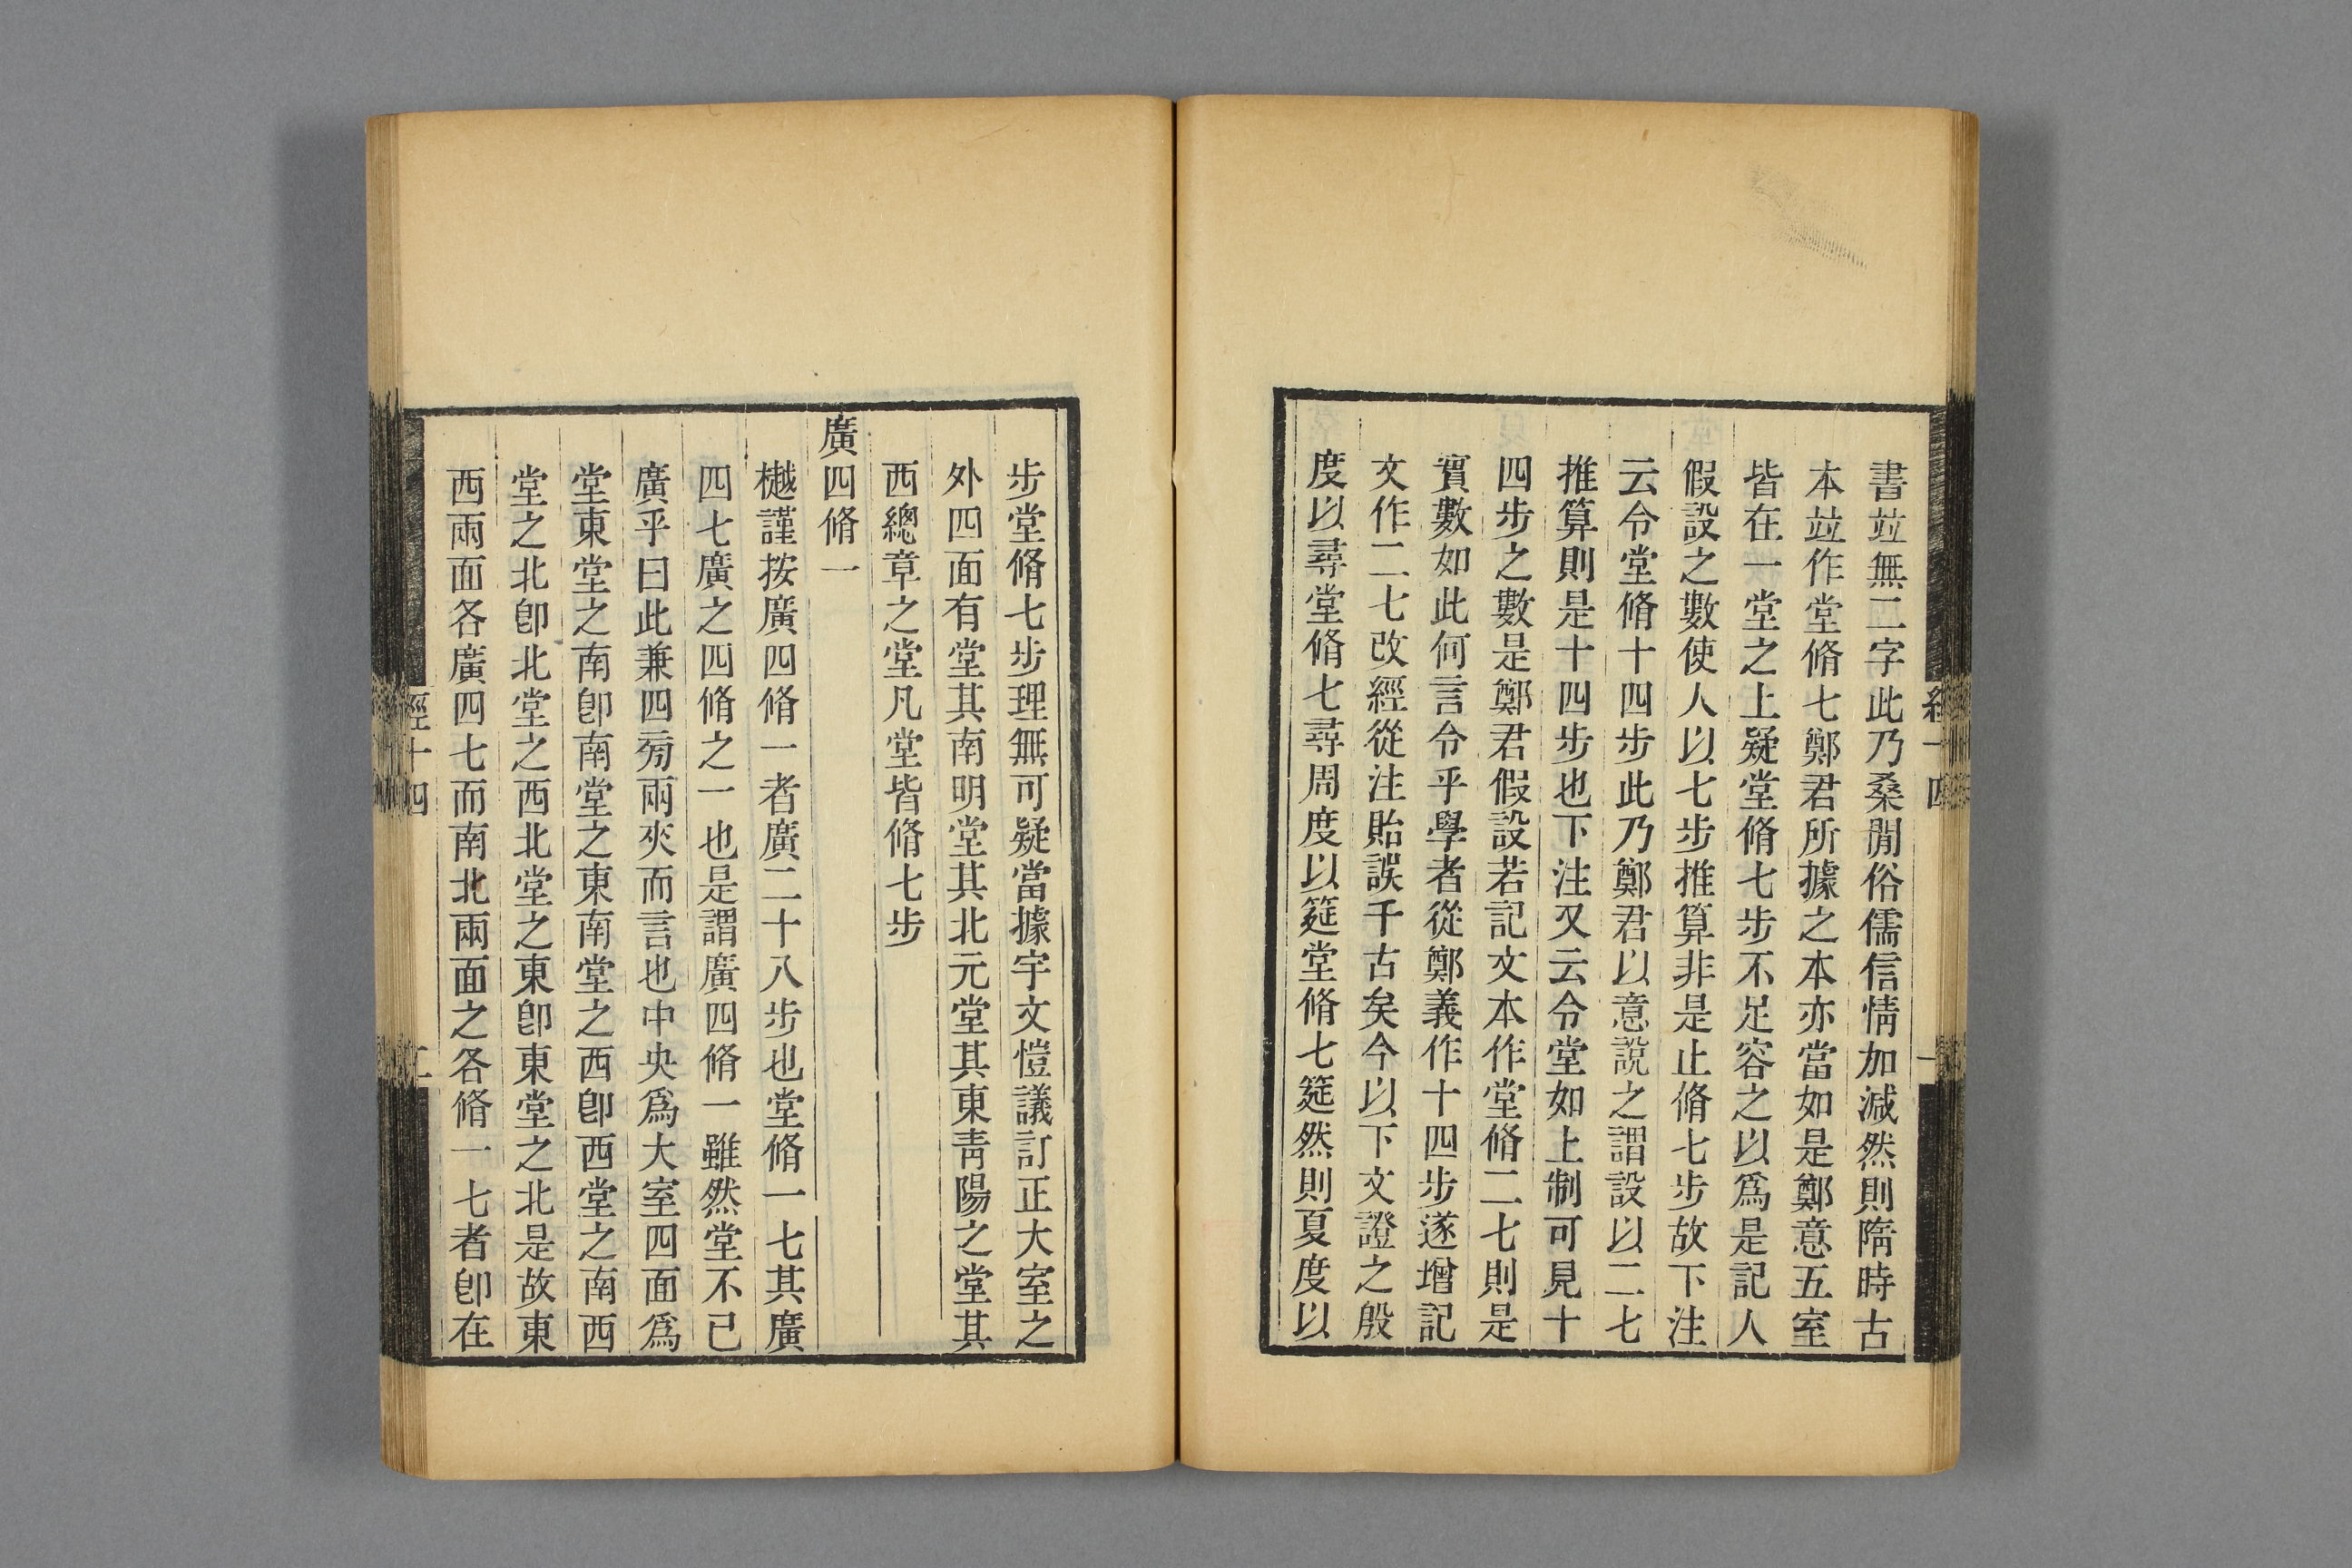 書竝無二字此乃桑閒俗儒信情加減然則隋時古
本竝作堂脩七鄭君所據之本亦當如是鄭意五室
皆在一堂之上疑堂脩七步不足容之以爲是記人
假設之數使人以七步推算非是止脩七步故下注
云令堂脩十四步此乃鄭君以意說之謂設以二七
推算則是十四步也下注又云令堂如上制可見十
四步之數是鄭君假設若記文本作堂脩二七則是
實數如此何言令乎學者從鄭義作十四步遂增記
文作二七改經從注貽誤千古矣今以下文證之殷
度以尋堂脩七尋周度以筵堂脩七筵然則夏度以
經十四
一
步堂脩七步理無可疑當據宇文愷議訂正大室之
外四面有堂其南明堂其北元堂其東靑陽之堂其
西總章之堂凡堂皆脩七步
廣四脩一
樾謹按廣四脩一者廣二十八步也堂脩一七其廣
四七廣之四脩之一也是謂廣四脩一雖然堂不已
廣乎曰此兼四㫄兩夾而言也中央爲大室四面爲
堂東堂之南卽南堂之東南堂之西卽西堂之南西
堂之北卽北堂之西北堂之東卽東堂之北是故東
西兩面各廣四七而南北兩面之各脩一七者卽在
經十四
二